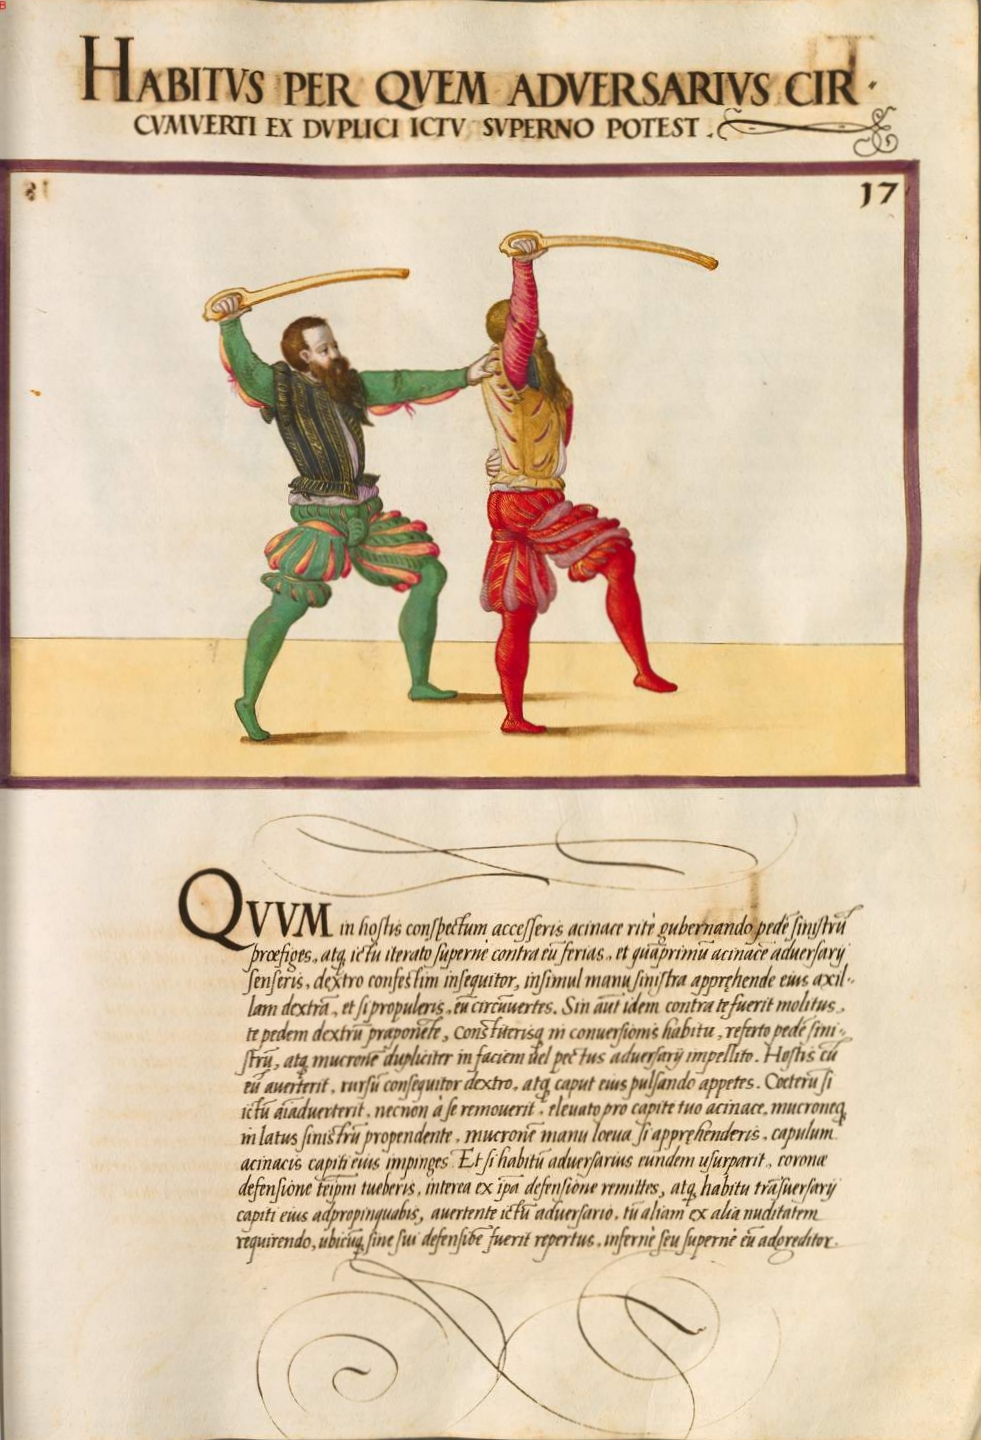 HABITVS PER QVEM ADVERSARIVS CIR.
CVMVERTI EX DVPLICI ICTV SVPERNO POTEST.
17
QVVM in hostis conspectum accesseris acinace ritè gubernando pedẽ sinistrũ
præfiges, atq, ictũ iterato supernè contra eũ ferias, et quãprimũ acinace adversarÿ
senseris, dextro confestim insequitor, insimul manu sinistra apprehende eius axil-
lam dextrã, et si propuleris, eũ circũvertes. Sin aũt idem contra te fuerit molitus,
te pedem dextrũ praponete, Constiterisq in conversionis habitu, referto pedẽ sini-
strũ, atq mucronẽ dupliciter in faciem vel pectus adversarÿ impellito. Hostis cũ
eũ averterit, rursũ consequitor dextro, atq caput eius pulsando appetes. Coeterũ si
ictũ aĩadverterit, necnon à se removerit, elevato pro capite tuo acinace, mucroneq
in latus sinistrũ propendente, mucronẽ manu loeva si apprehenderis, capulum
acinacis capiti eius impinges. Et si habitũ adversarius eundem usurparit, coronæ
defensione teipm tueberis, interea ex ipa defensione remittes, atq habitu trãsversarÿ
capiti eius adpropinquabis, avertente ictũ adversario, tũ aliam ex alia nuditatem
requirendo, ubicũq, sine sui defensioẽ fuerit repertus, infernè seu supernè eũ adoreditor.